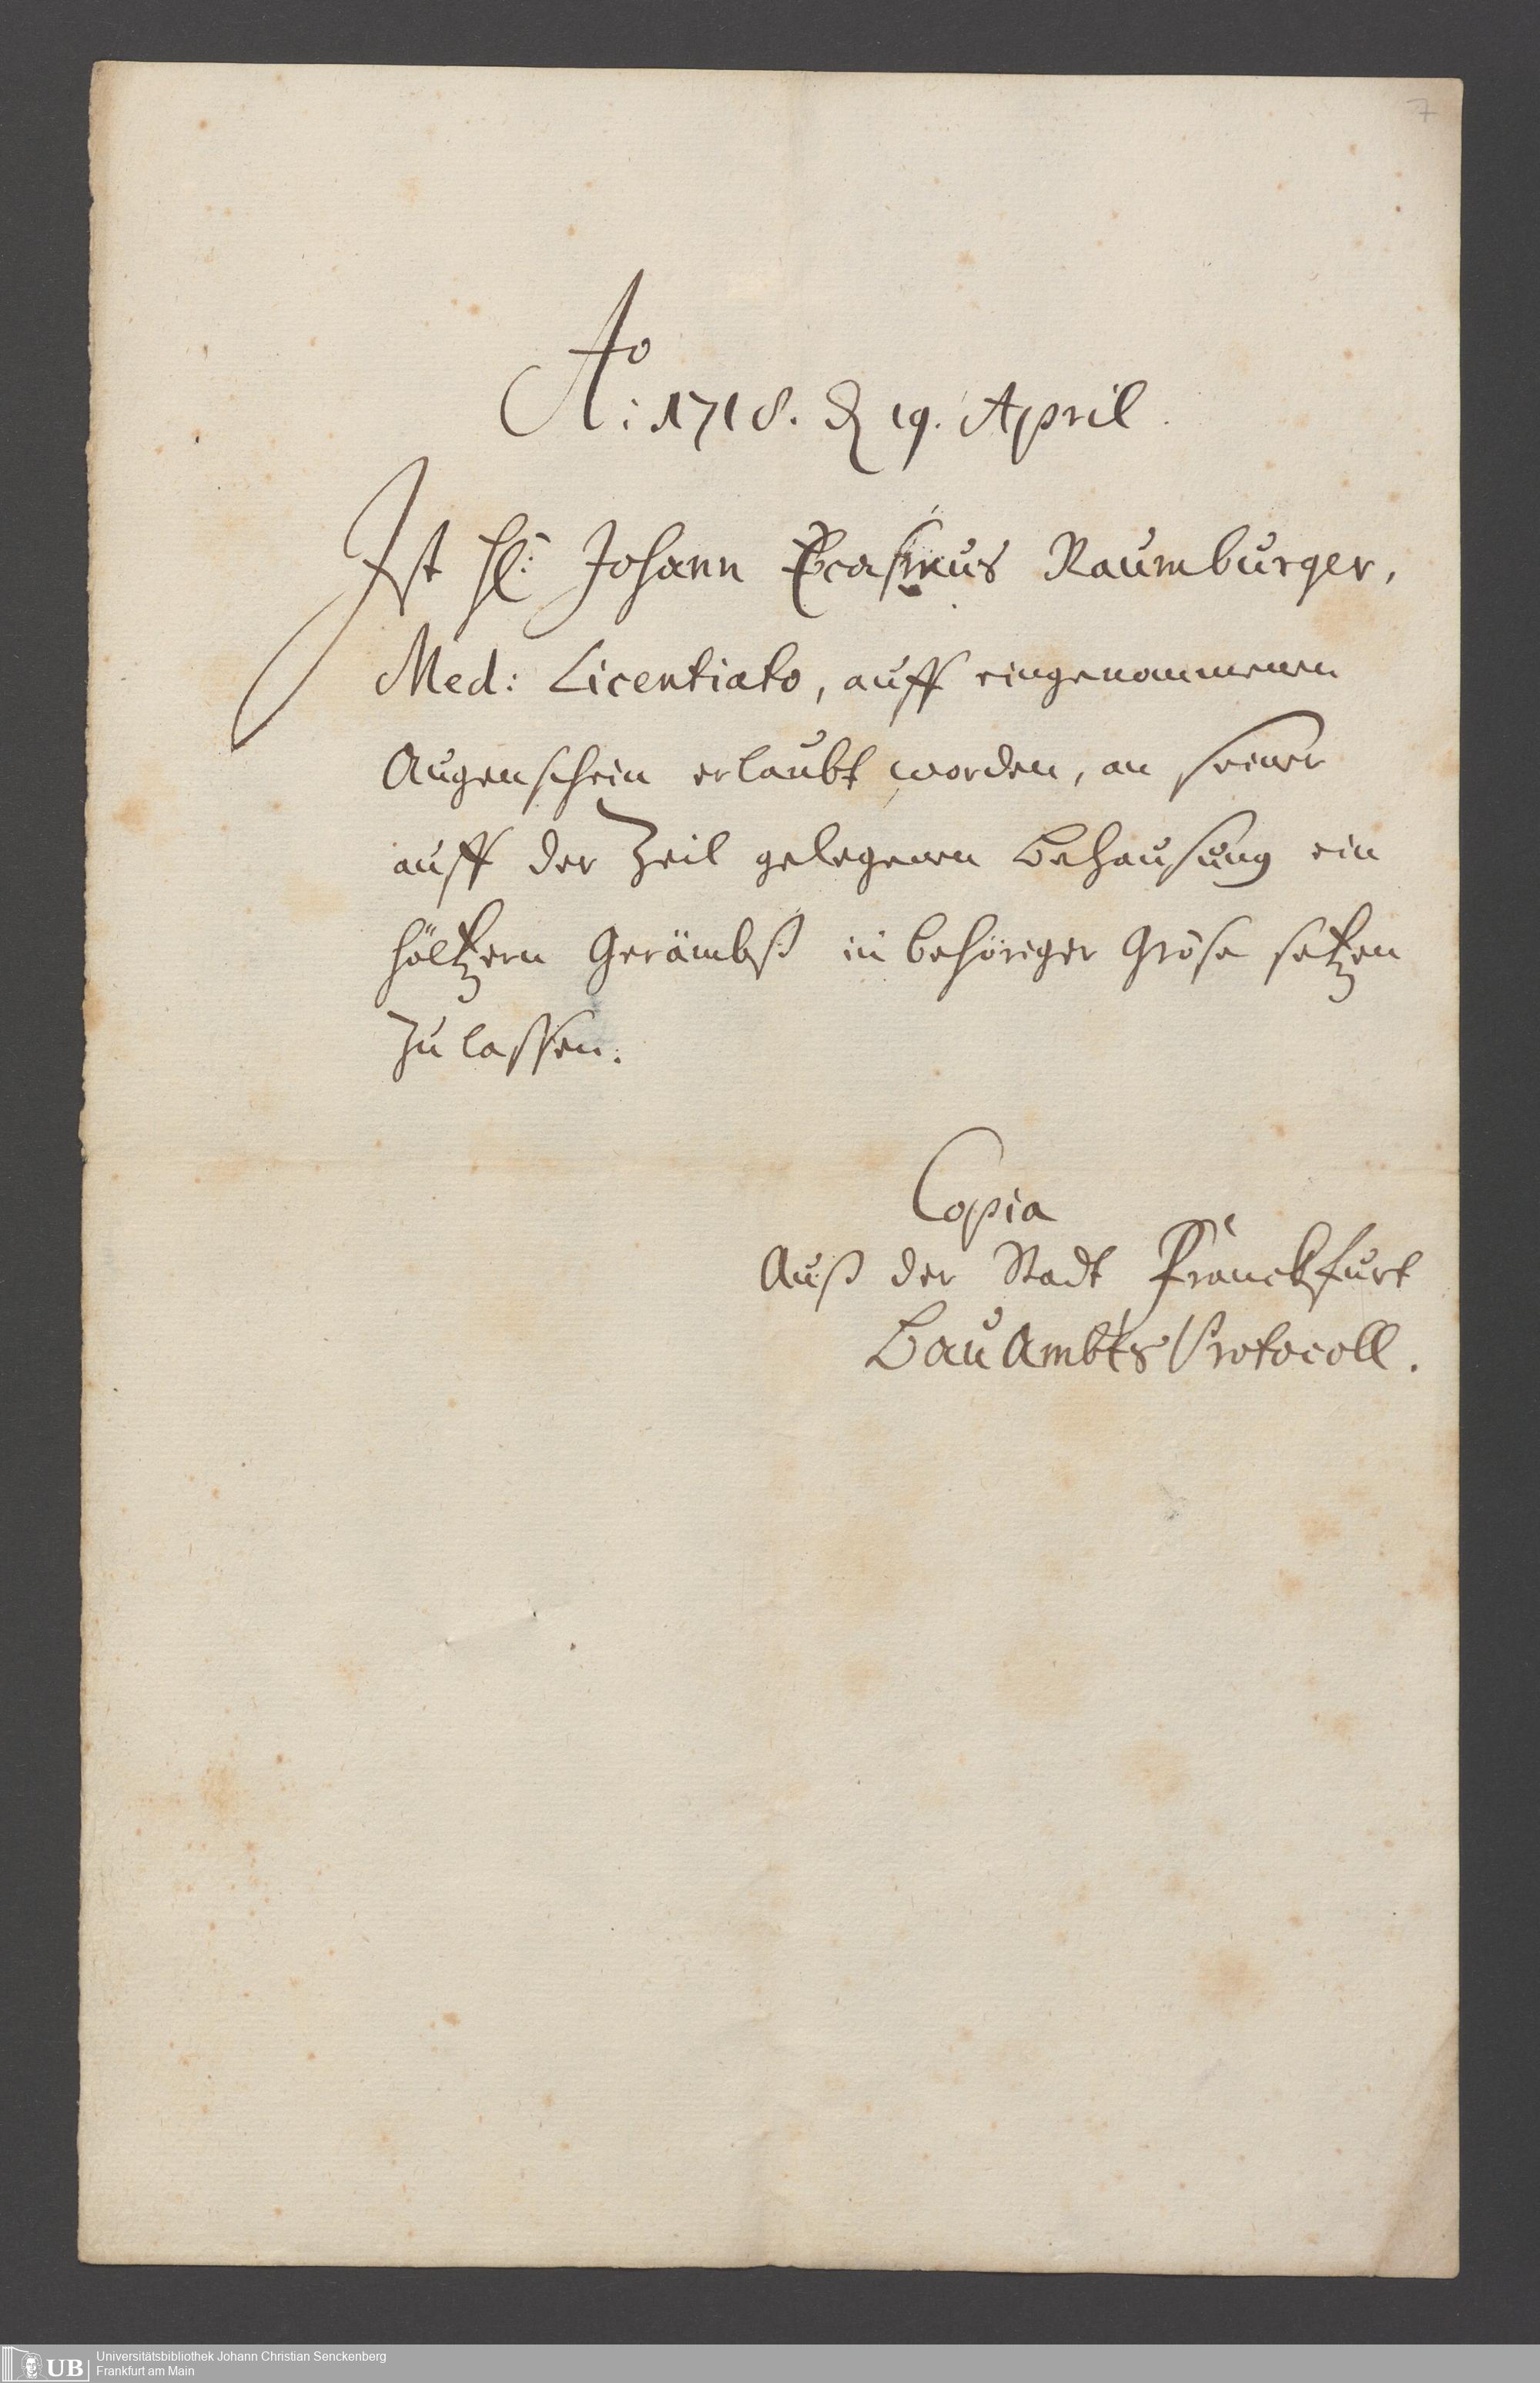 7
Ao: 1718. d 19. April.
Ist H: Johann Erasmus Naumburger,
Med: Licentiato, auff eingenommenen
Augenschein erlaubt worden, an seiner
auff der Zeil gelegenen Behausung ein
höltzern Gerämbß in behöriger Gröse setzen
zu lassen.
Copia
Auß der Stadt Franckfurt
Bau Ambts Protocoll.
UB
Universitätsbibliothek Johann Christian Senckenberg
Frankfurt am Main